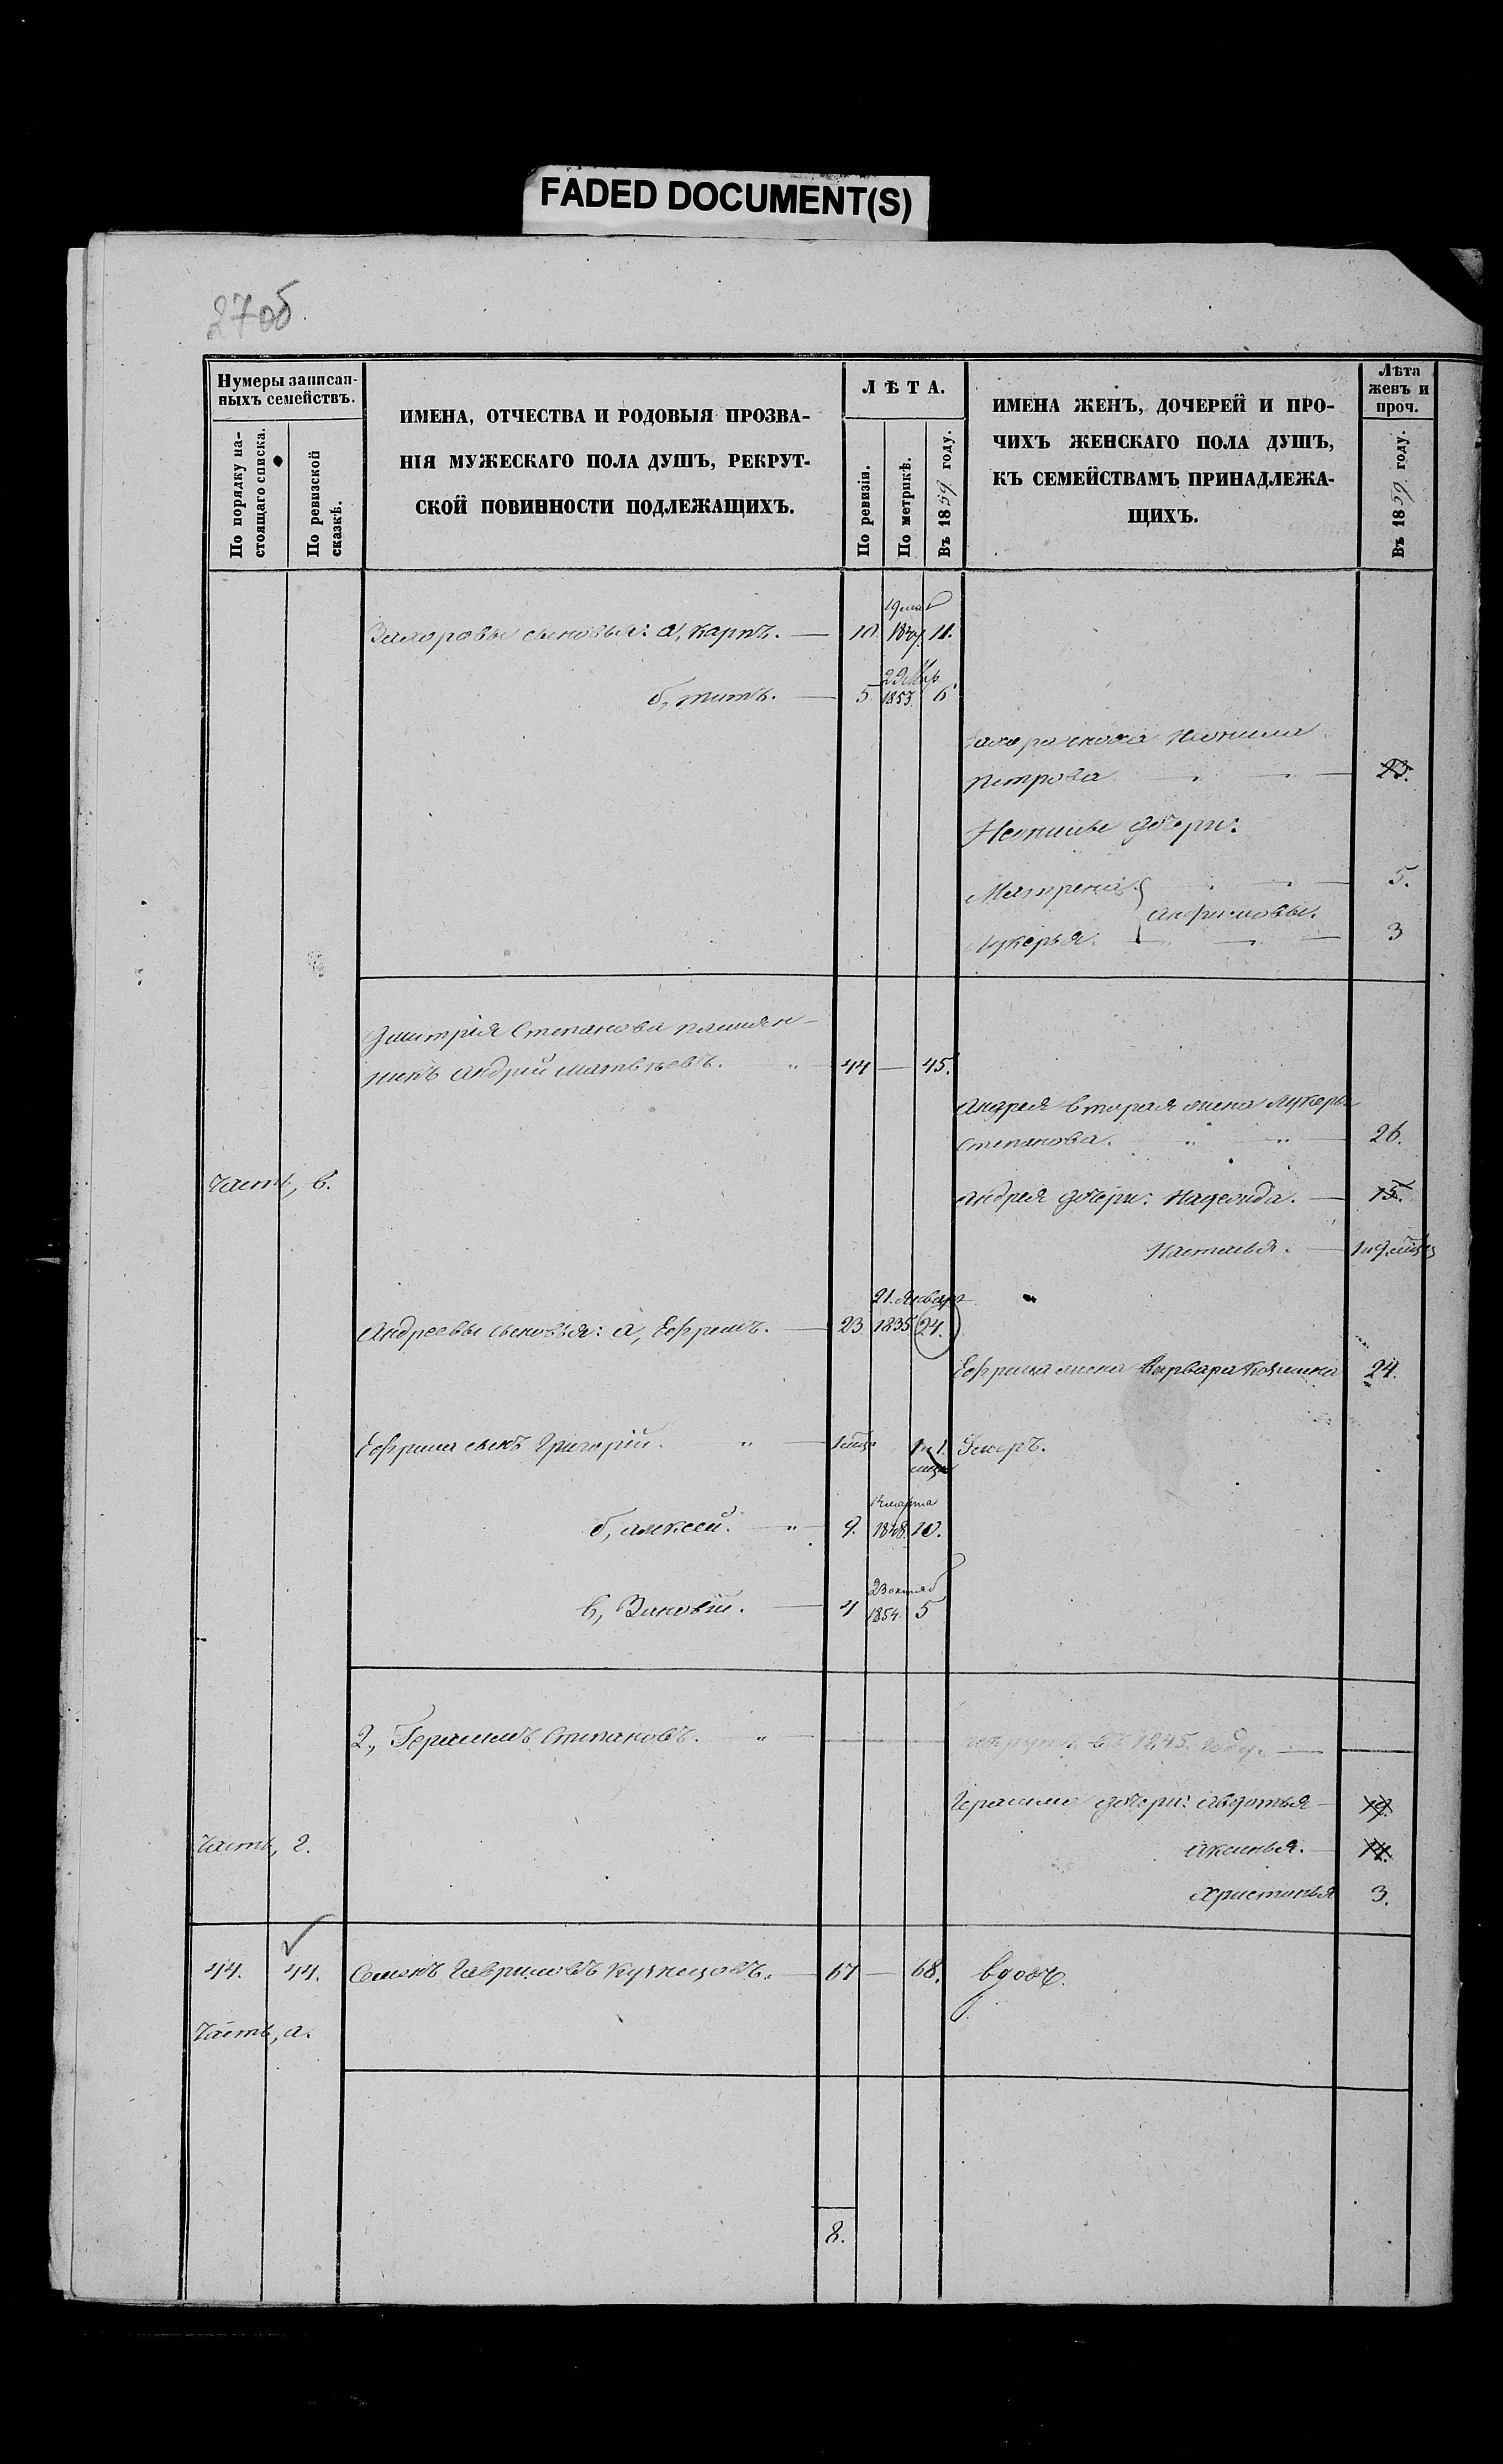 FADED DOCUMENT(S)
27об
Нумеры записан-
ныхъ семействъ.
По порядку на-
стоящаго списка.
По ревизской
сказкѣ.
ИМЕНА, ОТЧЕСТВА И РОДОВЫЯ ПРОЗВА-
НІЯ МУЖЕСКАГО ПОЛА ДУШЪ, РЕКРУТ-
СКОЙ ПОВИННОСТИ ПОДЛЕЖАЩИХЪ.
ЛѢТА.
По ревизіи.
По метрикѣ.
Въ 1859 году.
ИМЕНА ЖЕНЪ, ДОЧЕРЕЙ И ПРО-
ЧИХЪ ЖЕНСКАГО ПОЛА ДУШЪ,
КЪ СЕМЕЙСТВАМЪ ПРИНАДЛЕЖА-
ЩИХЪ.
Лѣта
женъ и
проч.
Въ 1859 году.
Захаровы сыновья: а, Карпъ. — 10 11.
б, Титъ. — 5 1853. 6
Захара сноха Неонила
Петрова — 23.
Неонилы дочери:
Матрена — 5.
Анфимовы.
Лукерья. — 3
Дмитрія Степанова племян-
никъ Андрей Матвѣевъ. 44 — 45.
Андрея вторая жена Лукерья
Степанова. 26.
Часть, в.
Андрея дочери: Надежда. — 15.
Настасья. —
21. Январ
Андреевы сыновья: а, Ефремъ. — 23 1835 24.
Ефрема жена Варвара 24.
Ефрема сынъ Григорій. Умеръ.
марта
б, Алексей. 9. 1848. 10.
23 октяб
в, Зиновій. — 4 1854. 5
2, Герасимъ Степановъ. въ 1845. году. —
Герасима дочери: Авдотья — 19.
Часть, г.
Аксинья. — 14.
Христинья 3.
44. 44. Семенъ Гавриловъ Кузнецовъ. 67 — 68. вдовъ.
Часть, а.
8.